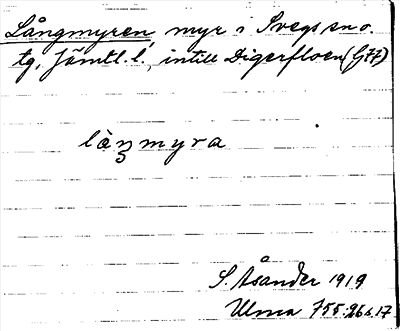 Långmyren, myr i Svegs sn o.
tg, Jämtl. l., intill Digerfloen (G77)
làŋmyra
S. Åsander 1919
Ulma 755:26 s.17